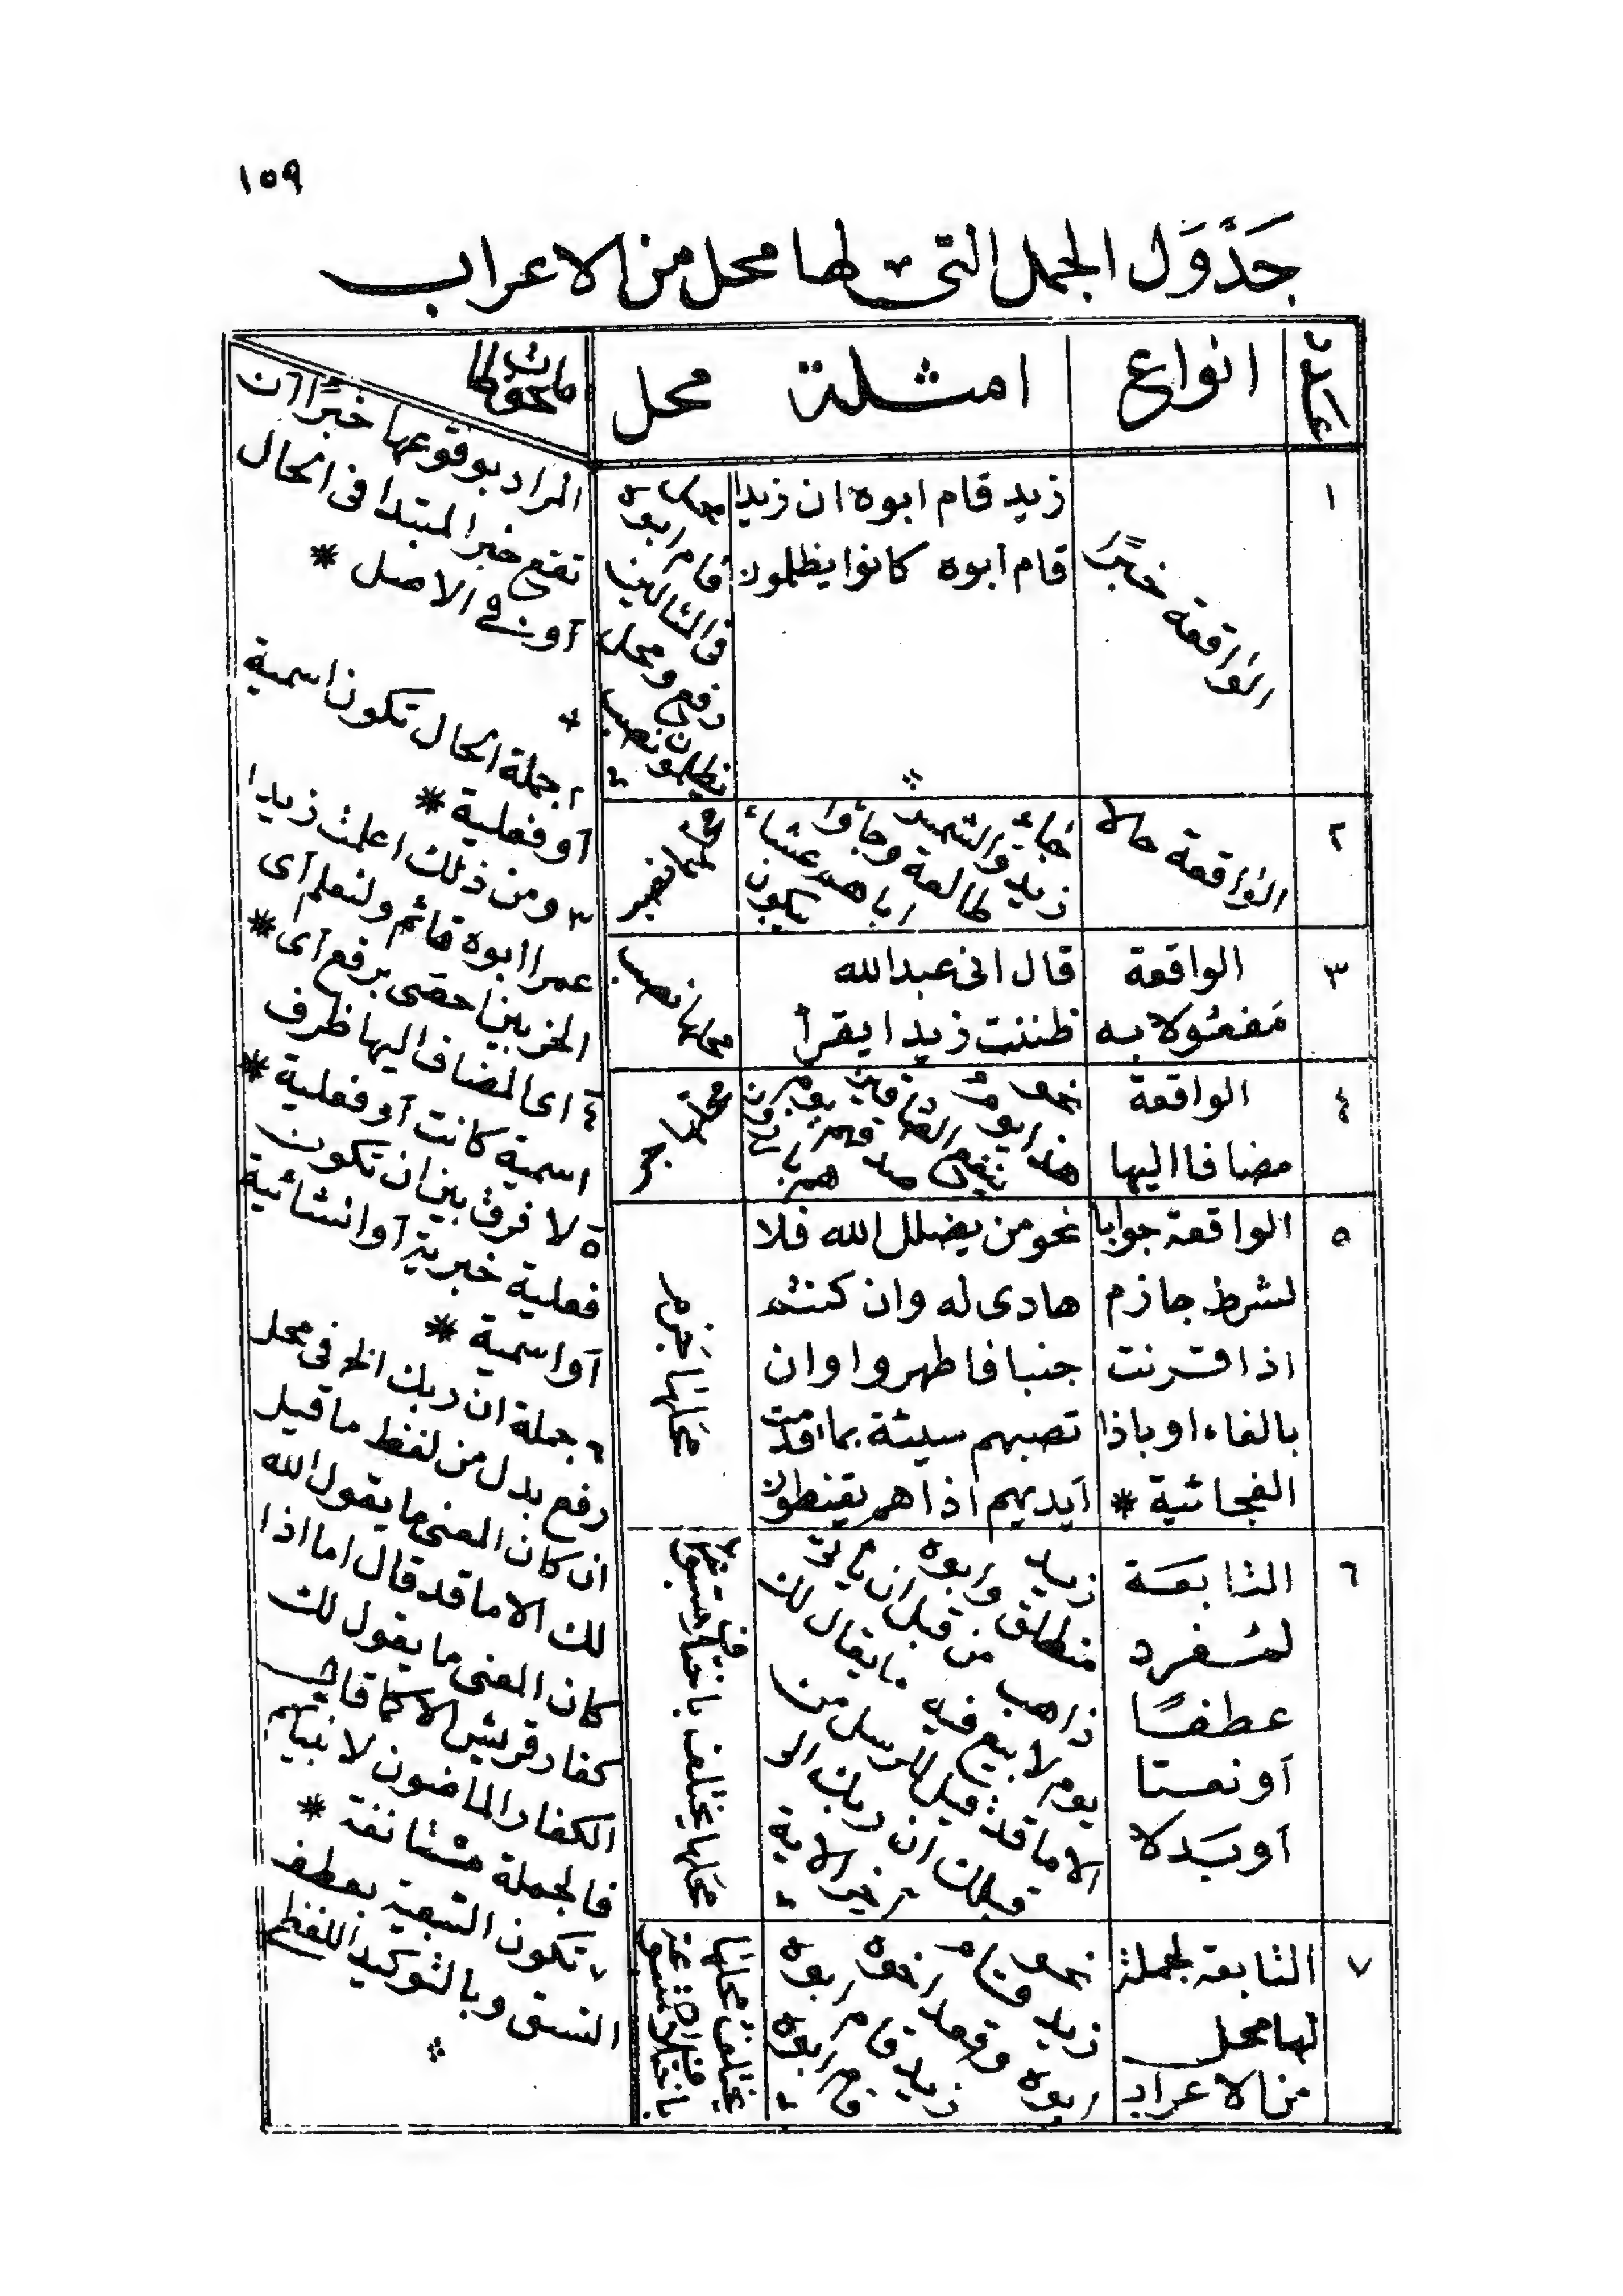 ١٥٩
جَدْوَل الجمل التى لها محل من الاعراب
عدد
انواع
امثلة
محل
ملحوظات
١
الواقعة خبرًا
زيد قام ابوه ان زيدا
قام أبوه كانوا يظلمون
محل
قام ابوه
فى المثالين
رفع ومحل
يظلمون نصب
٢
الواقعة حالا
جاء زيد والشمس طالعة وجاؤا اباهم عشاء يبكون
محلها نصب
٣
الواقعة
مفعولا به
قال انى عبدالله
ظننت زيدا يقرأ
محلها نصب
٤
الواقعة
مضافا اليها
نحو هذا يوم ينفع الصادقين صدقهم يوم هم بارزون
محلها جر
٥
الواقعة جوابا
لشرط جازم
اذا اقترنت
بالفاء او باذا
الفجائية *
نحو من يضلل الله فلا
هادى له وان كنتم
جنبا فاطهروا وان
تصبهم سيئة بما قدمت
أيديهم اذا هم يقنطون
محلها جزم
٦
التابعة
لمفرد
عطفًا
أو نعتا
أو بدلا
زيد منطلق وابوه
ذاهب من قبل ان يأتى
يوم لا بيع فيه ما يقال لك
الا ما قد قيل للرسل من
قبلك ان ربك الى
آخر الاية
محلها يختلف باختلاف متبوعها
٧
التابعة لجملة
لها محل
من الاعراب
نحو زيد قام ابوه وقعد اخوه
زيد قام ابوه قام ابوه
محلها يختلف باختلاف متبوعه
المراد بوقوعها خبرًا ان
تقع خبر المبتدا فى الحال
أو فى الاصل *
٢ جملة الحال تكون اسمية
أو فعلية *
٣ ومن ذلك اعلمت زيدا
عمرا ابوه قائم ولنعلم أى
الحزبين احصى برفع أى *
٤ اى المضاف اليها ظرف
اسمية كانت أو فعلية *
٥ لا فرق بين ان تكون
فعلية خبرية أو انشائية
أو اسمية *
٦ جملة ان ربك الخ فى محل
رفع بدل من لفظ ما قيل
ان كان المعنى ما يقول الله
لك الا ما قد قال اما اذا
كان المعنى ما يقول لك
كفار قريش الا كما قال
الكفار الماضون لانبيائهم
فالجملة مستانفة *
٧ تكون التبعية بعطف
النسق وبالتوكيد اللفظى